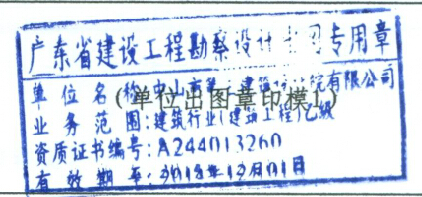 广东省建设工程勘察设计出图专用章
单位名称:中山市建筑设计院有限公司
(单位出图章印模1)
业务范围:建筑行业(建筑工程)乙级
资质证书编号:A244013260
有效期至:2018年12月01日